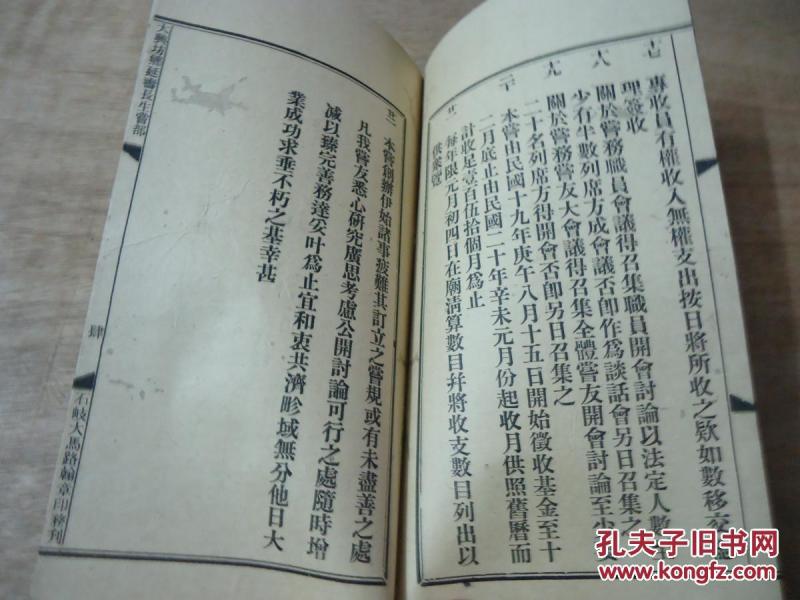 十七 專收員有權收入無權支出按日將所收之欵如數移交
理簽收
十八 關於嘗務職員會議得召集職員開會討論以法定人數
少有半數列席方成會議否卽作爲談話會另日召集之
十九 關於嘗務嘗友大會議得召集全體嘗友開會討論至少
二十名列席方得開會否卽另日召集之
二十 本嘗由民國十九年庚午八月十五日開始徵收基金至十
二月底止由民國二十年辛未元月份起收月供照舊曆而
計收足壹百伍拾個月爲止
廿一 每年限元月初四日在廟淸算數目幷將收支數目列出以
供衆覽
廿二 本嘗創辦伊始諸事疲難其訂立之嘗規或有未盡善之處
凡我嘗友悉心研究廣思考慮公開討論可行之處隨時增
减以臻完善務達妥叶爲止宜和衷共濟畛域無分他日大
業成功求垂不朽之基幸甚
肆
石岐大馬路翰章印務刊
孔夫子旧书网
www.kongfz.com